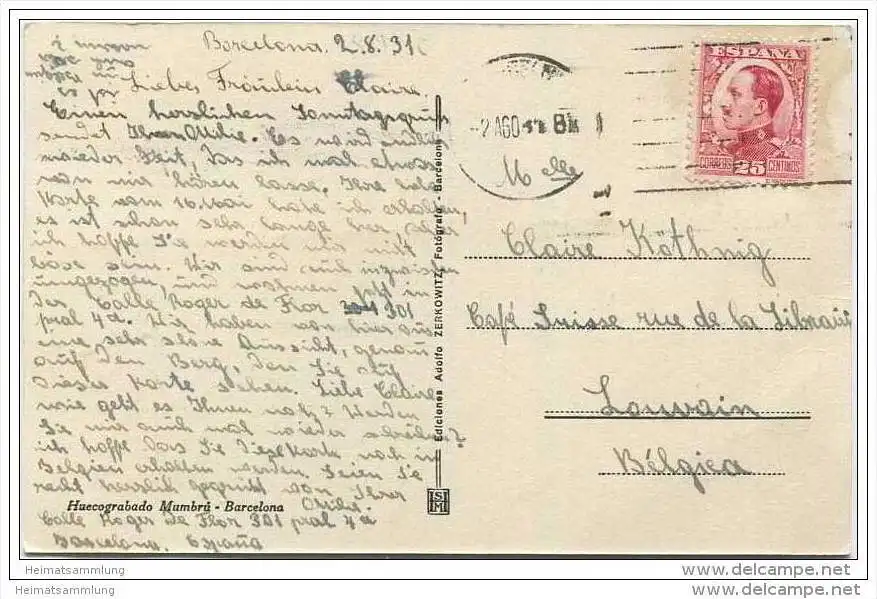 Barcelona. 2.8.31
Liebes Fräulein Claire.
Einen herzlichen Sonntagsgruss
sendet Ihnen Ottilie. Es wird endlich
wieder Zeit, das ich mal etwas
von mir hören lasse. Ihre liebe
Karte vom 10. Mai habe ich erhalten,
es ist schon sehr lange her, aber
ich hoffe Sie werden mir nit
böse sein. Wir sind auch inzwischen
umgezogen, und wohnen jetzt in
der Calle Roger de Flor 301
pral 4a. Wir haben von hier aus
eine sehr schöne Aussicht, genau
auf den Berg, den Sie auf
dieser Karte sehen. Liebe Claire
wie geht es Ihnen noch? Werden
Sie mir auch mal wieder schreiben?
ich hoffe das Sie diese Karte noch in
Belgien erhalten werden. Seien Sie
recht herzlich gegrüsst von Ihrer
Ottilie.
Calle Roger de Flor 301 pral 4a
Barcelona. España
Huecograbado Mumbrú - Barcelona
Ediciones Adolfo ZERKOWITZ, Fotógrafo - Barcelona
2 AGO
ESPAÑA
CORREOS 25 CENTIMOS
Mlle
Claire Köthnig
Café Suisse rue de la
Louvain
Bélgica
Heimatsammlung
Heimatsammlung
delcampe.net
delcampe.net